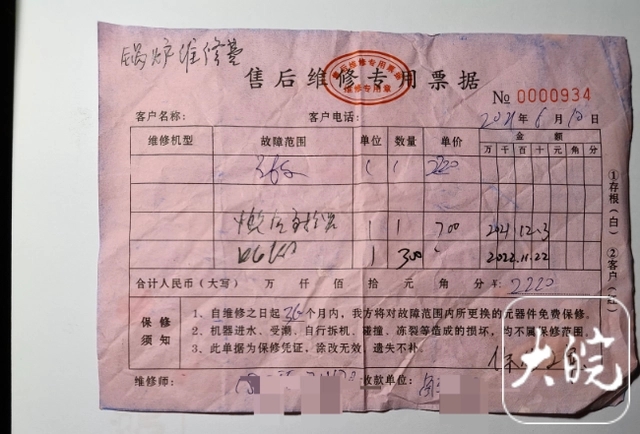 锅炉维修费
售后维修专用票据
售后维修专用票据
维修专用章
№ 0000934
客户名称： 客户电话： 2021年6月10日
维修机型 故障范围 单位 数量 单价 金额
万 千 百 十 元 角 分
1 1 2220
1 1 700 2021.12.3
1 300 2022.11.22
合计人民币（大写） 万 仟 佰 拾 元 角 分 ¥：2220
①存根（白） ②客户（红）
保修须知
1、自维修之日起36个月内，我方将对故障范围内所更换的元器件免费保修。
2、机器进水、受潮、自行拆机、碰撞、冻裂等造成的损坏，均不属保修范围。
3、此单据为保修凭证，涂改无效，遗失不补。
维修师： 收款单位：
大皖